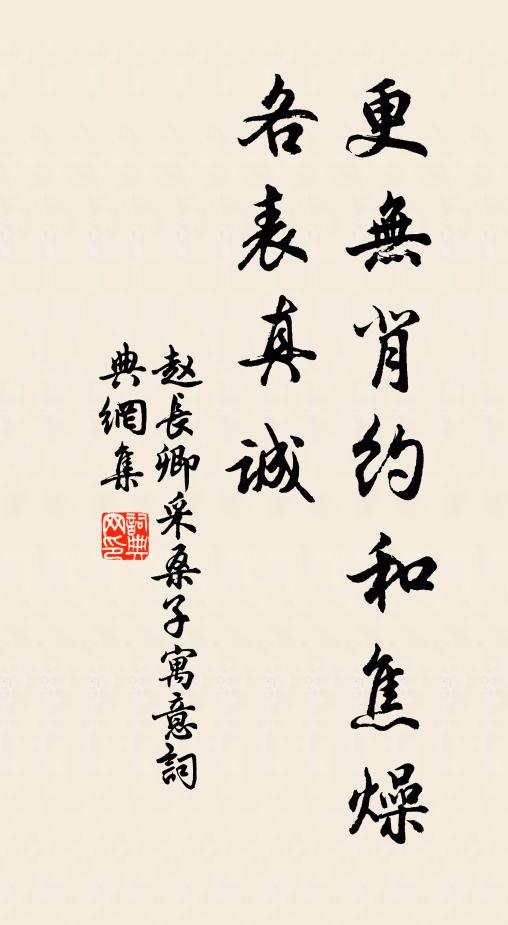 更無背約和焦燥
各表真誠
赵長卿采桑子寓意詞
典網集
詞典
网印